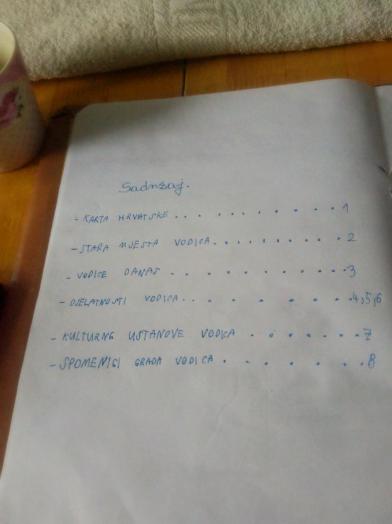 Sadržaj.
- KARTA HRVATSKE . . . . . . . . . . 1
- STARA MJESTA VODICA . . . . . . . . . . 2
- VODICE DANAS . . . . . . . . . . 3
- DJELATNOSTI VODICA . . . . . . . . 4,5,6
- KULTURNE USTANOVE VODICA . . . . . . . 7
- SPOMENICI GRADA VODICA . . . . . . . 8